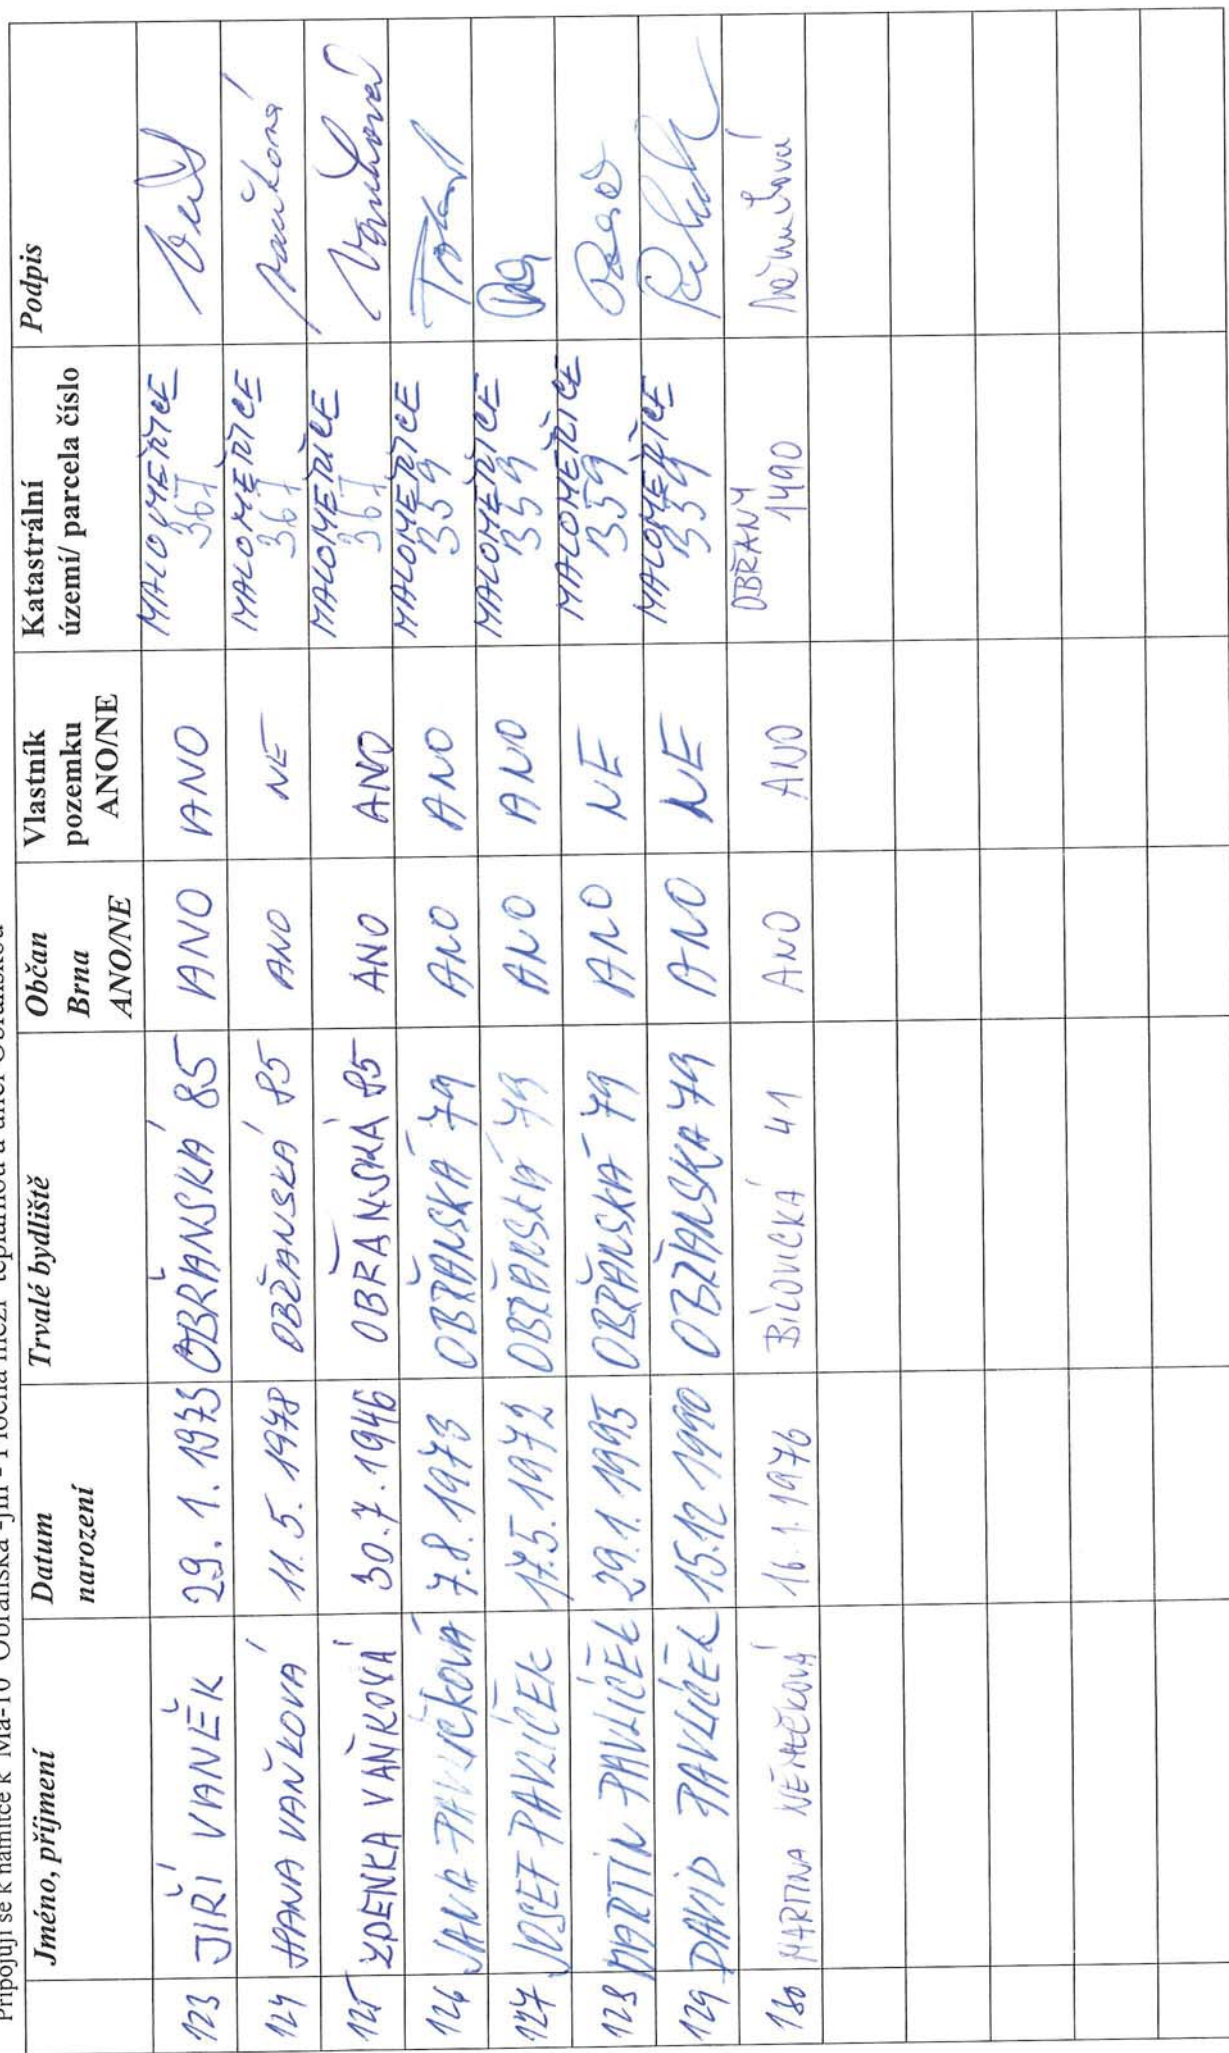 Připojuji se k námitce k Ma-10 Obřanská -jih - Plocha mezi teplárnou a ulicí Obřanskou
Jméno, příjmení Datum narození Trvalé bydliště Občan Brna ANO/NE Vlastník pozemku ANO/NE Katastrální území/ parcela číslo Podpis
123 JIŘÍ VANĚK 29. 1. 1973 OBŘANSKÁ 85 ANO ANO MALOMĚŘICE 367
124 HANA VAŇKOVÁ 11. 5. 1978 OBŘANSKÁ 85 ANO NE MALOMĚŘICE 367 Vaňková
125 ZDENKA VAŇKOVÁ 30.7.1946 OBŘANSKÁ 85 ANO ANO MALOMĚŘICE 367 Vaňková
126 JANA PAVLÍČKOVÁ 7.8.1973 OBŘANSKÁ 79 ANO ANO MALOMĚŘICE 359
127 JOSEF PAVLÍČEK 17.5.1972 OBŘANSKÁ 79 ANO ANO MALOMĚŘICE 359
128 MARTIN PAVLÍČEK 29.1.1993 OBŘANSKÁ 79 ANO NE MALOMĚŘICE 359
129 DAVID PAVLÍČEK 15.12.1990 OBŘANSKÁ 79 ANO NE MALOMĚŘICE 359
130 MARTINA NĚMEČKOVÁ 16.1.1976 BÍLOVICKÁ 41 ANO ANO OBŘANY 1490 Němečková